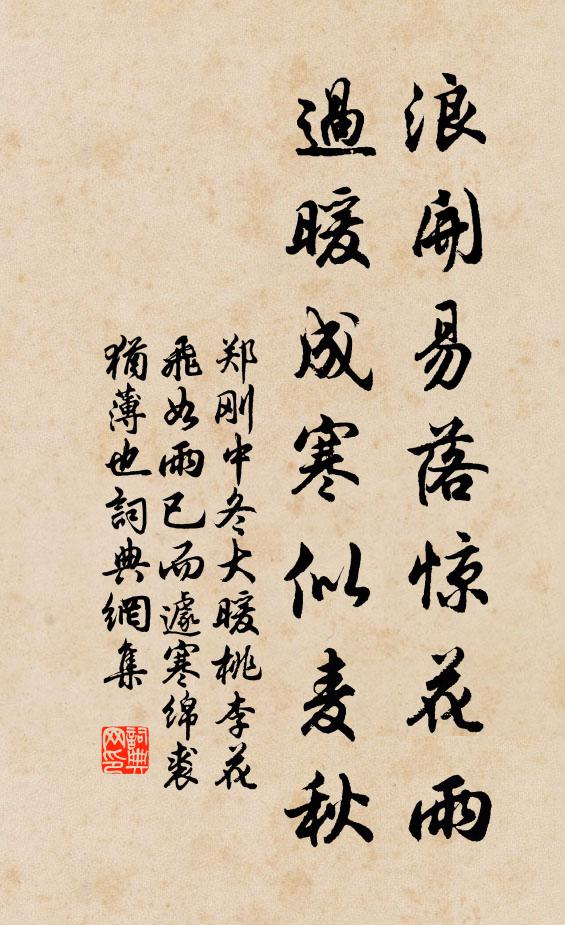 浪開易落惊花雨
過暖成寒似麦秋
郑刚中冬大暖桃李花
飛如雨已而遽寒绵裘
猶薄也詞典網集
詞典网印